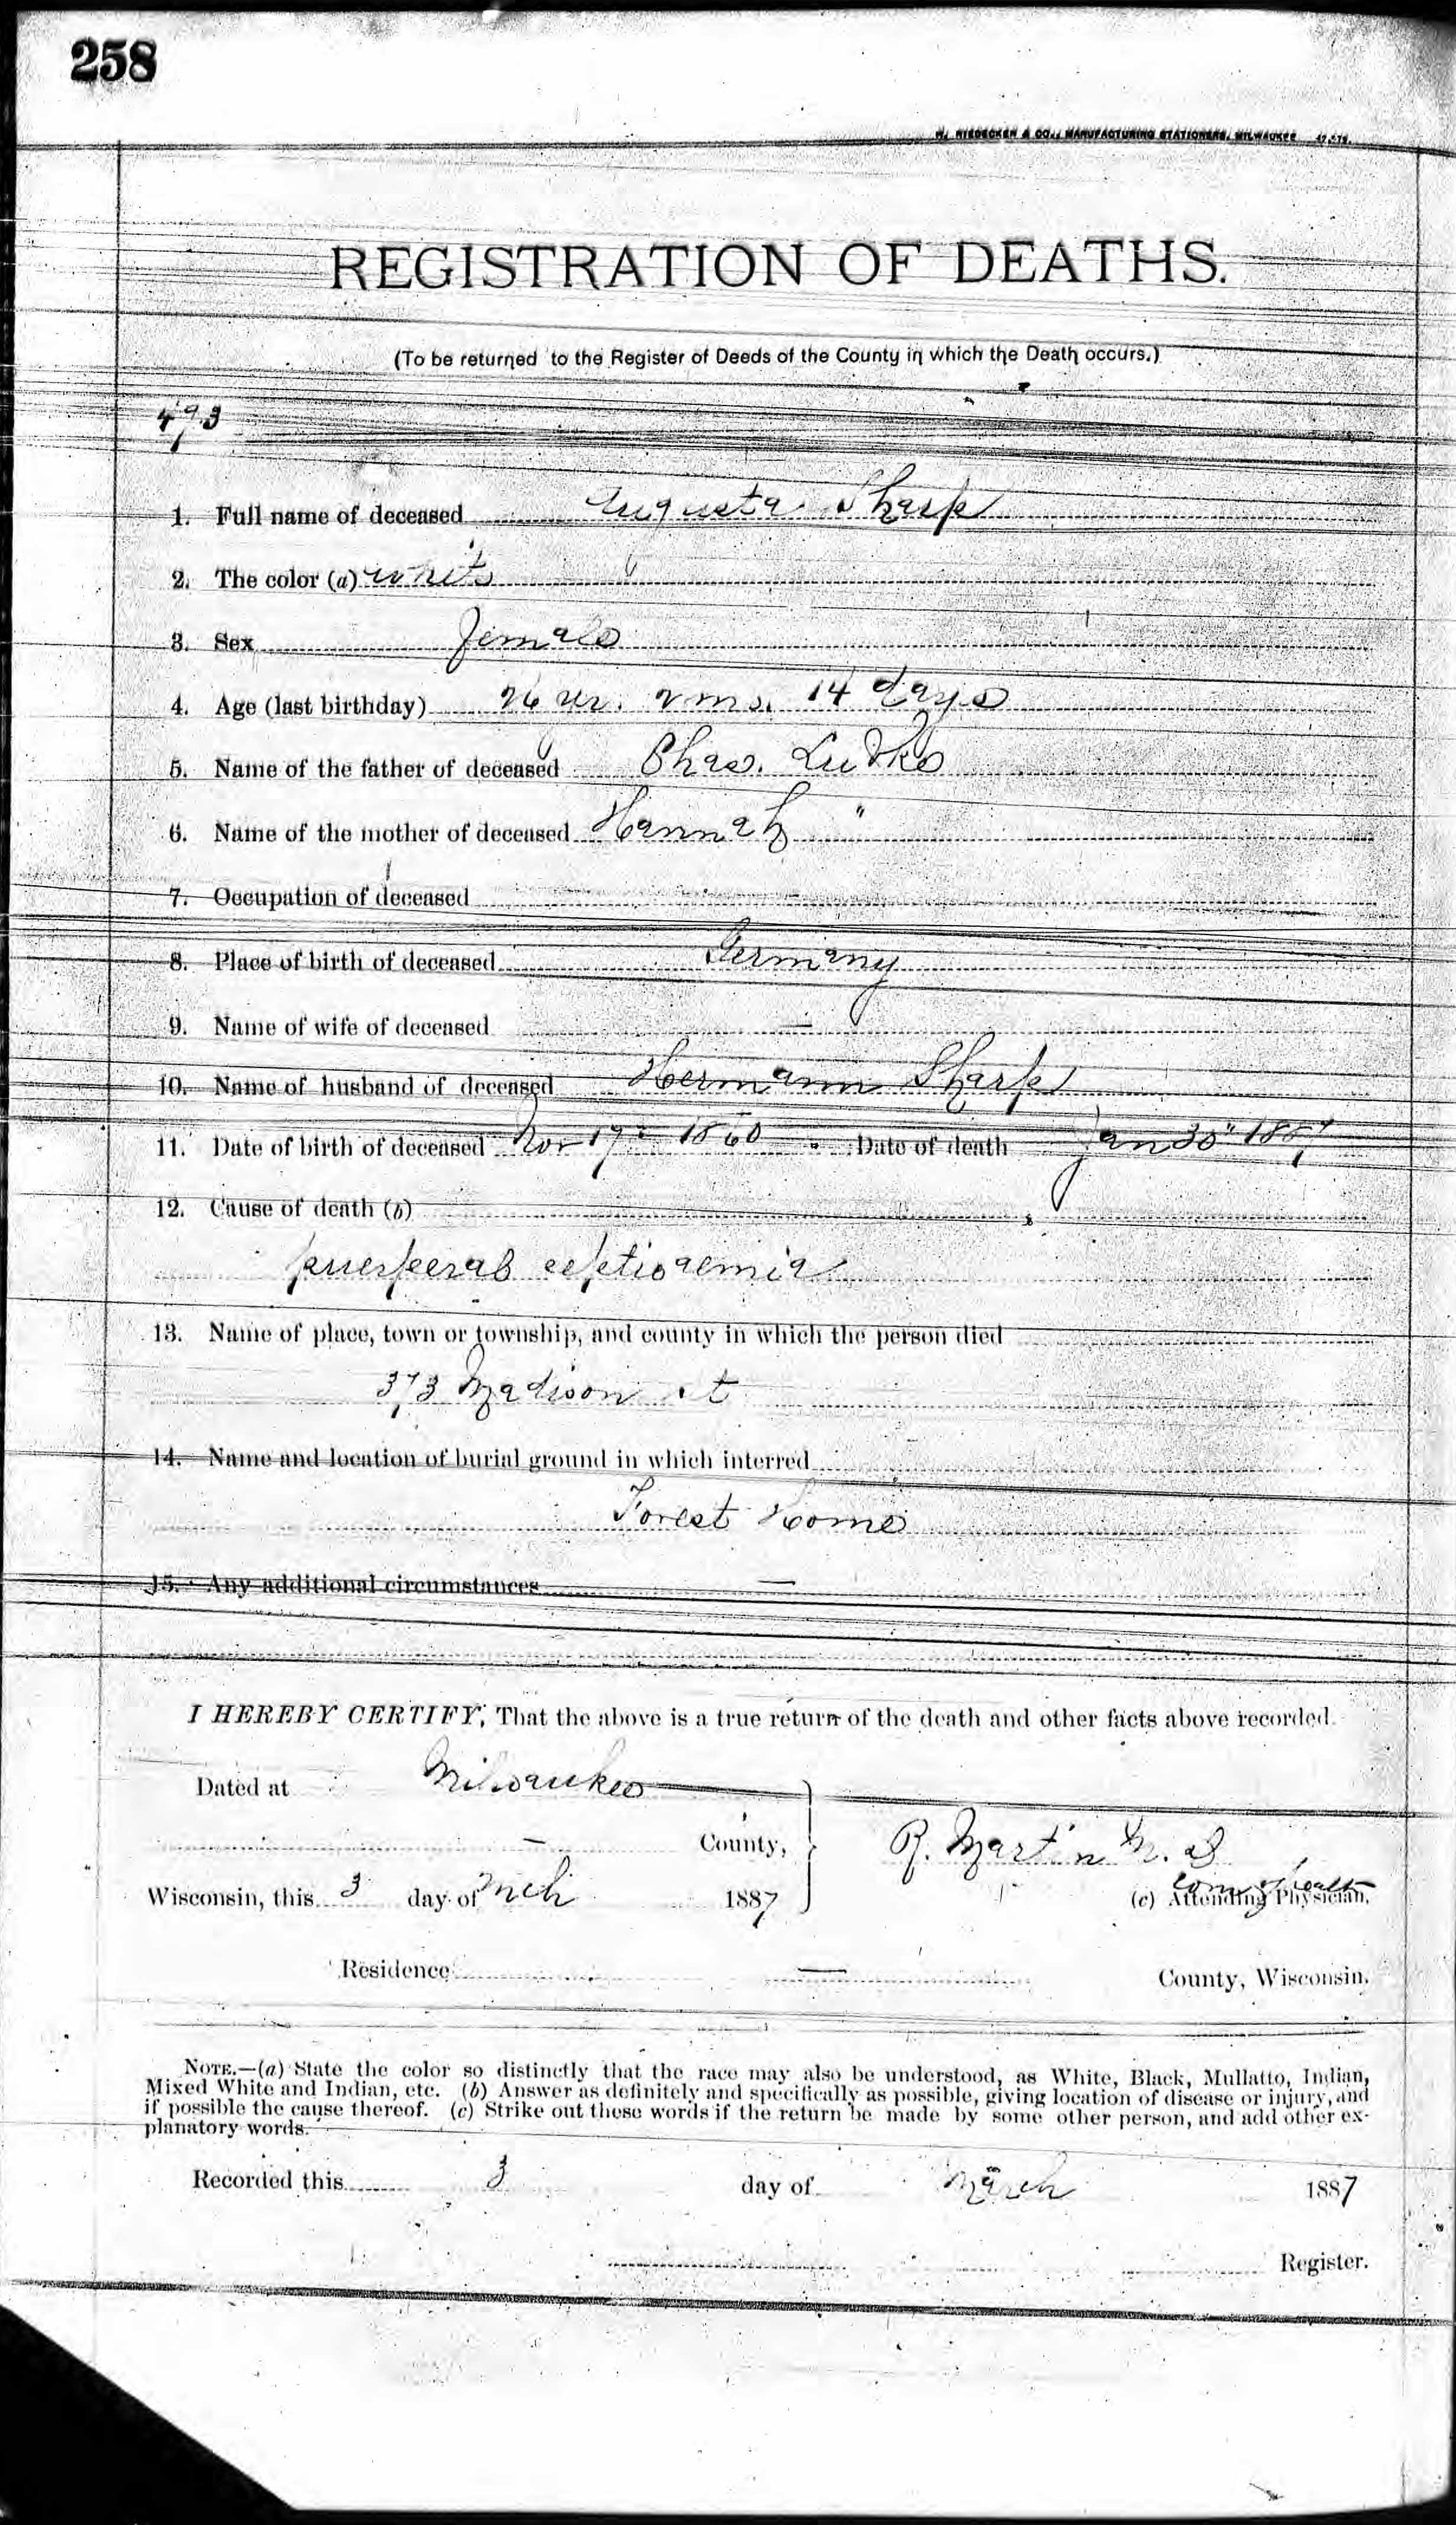 258
H. NIEDECKEN & CO., MANUFACTURING STATIONERS, MILWAUKEE
REGISTRATION OF DEATHS.
(To be returned to the Register of Deeds of the County in which the Death occurs.)
493
1. Full name of deceased Augusta Sharp
2. The color (a) white
3. Sex Female
4. Age (last birthday) 26 yr. 2 ms. 14 days
5. Name of the father of deceased Chas. Ludke
6. Name of the mother of deceased Hannah "
7. Occupation of deceased
8. Place of birth of deceased Germany
9. Name of wife of deceased —
10. Name of husband of deceased Hermann Sharp
11. Date of birth of deceased Nov 17" 1860. Date of death Jan 30" 1887
12. Cause of death (b)
puerperal septicaemia
13. Name of place, town or township, and county in which the person died
373 Madison st
14. Name and location of burial ground in which interred
Forest Home
15. Any additional circumstances —
I HEREBY CERTIFY, That the above is a true return of the death and other facts above recorded.
Dated at Milwaukee
— County,
R. Martin M. D
Wisconsin, this 3 day of Mch 1887
Com of Health
(c) Attending Physician.
Residence — County, Wisconsin.
NOTE.—(a) State the color so distinctly that the race may also be understood, as White, Black, Mullatto, Indian,
Mixed White and Indian, etc. (b) Answer as definitely and specifically as possible, giving location of disease or injury, and
if possible the cause thereof. (c) Strike out these words if the return be made by some other person, and add other ex-
planatory words.
Recorded this 3 day of March 1887
Register.